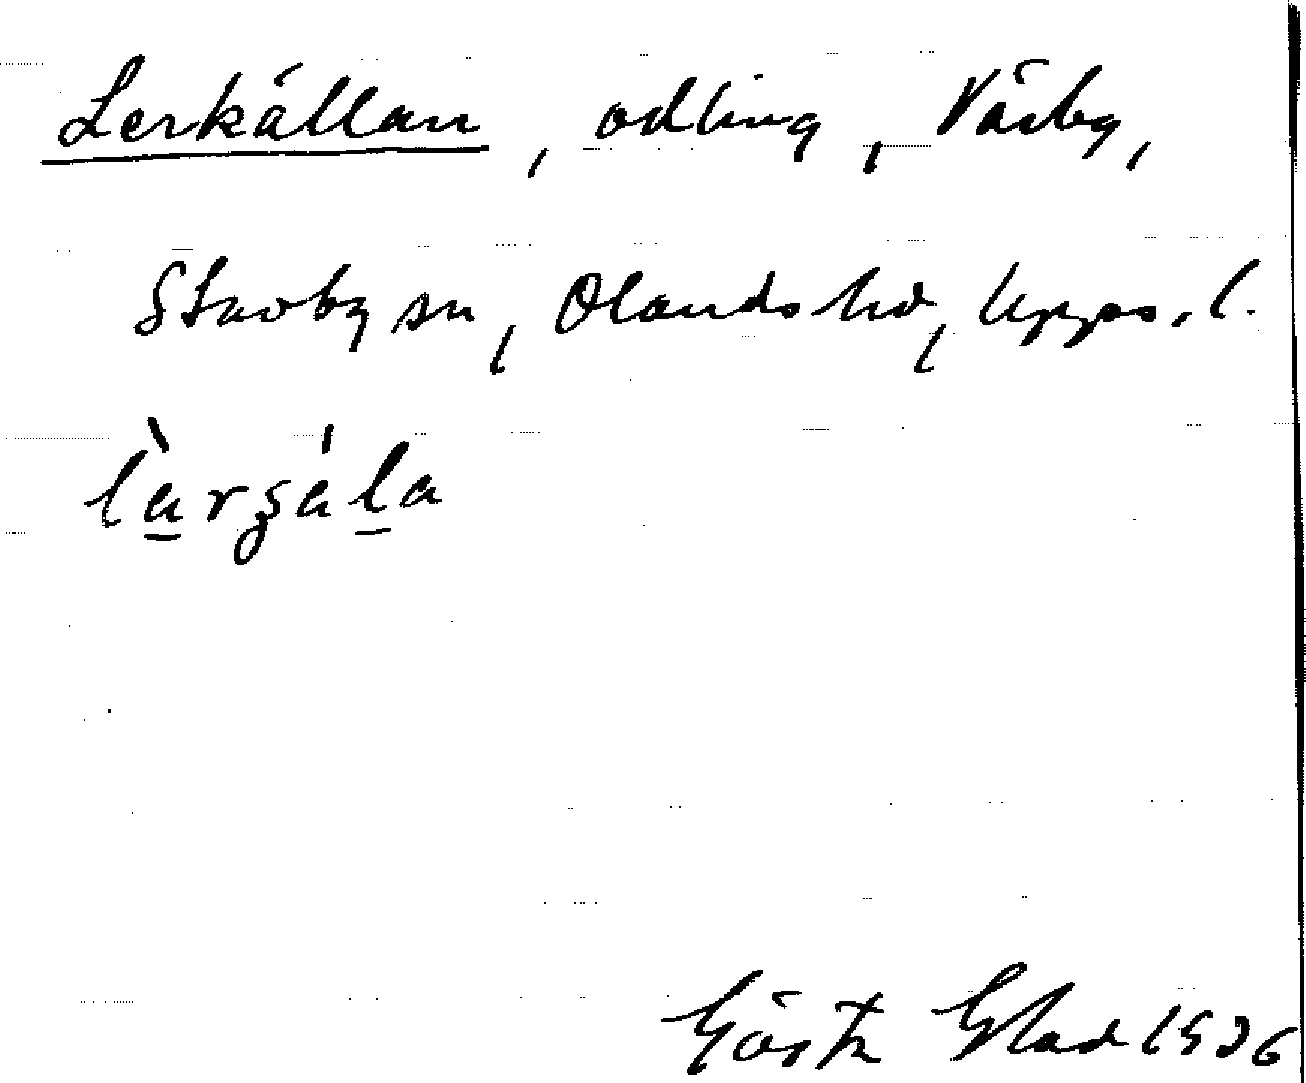 Lerkällan, odling, Väsby,
Stavby sn, Olands hd, Upps. l.
Gösta Glad 1936